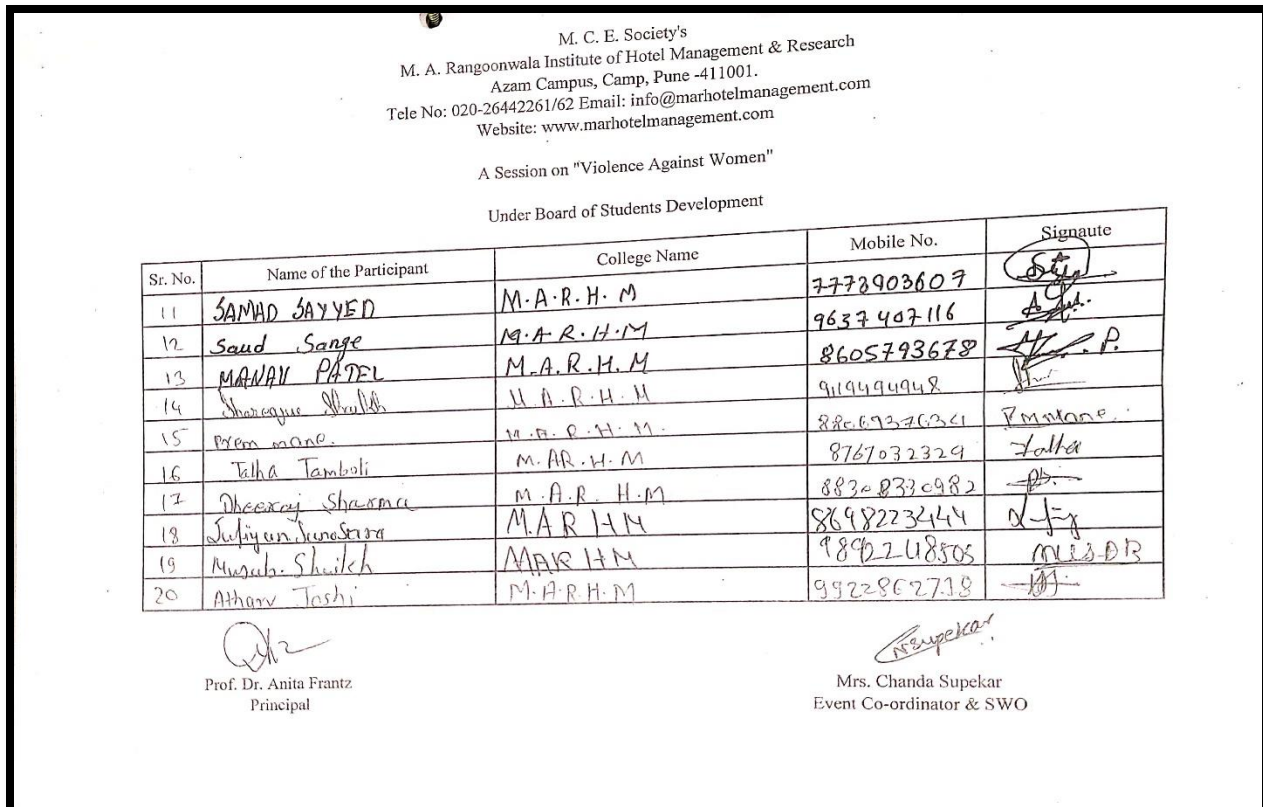 M. C. E. Society's
M. A. Rangoonwala Institute of Hotel Management & Research
Azam Campus, Camp, Pune -411001.
Tele No: 020-26442261/62 Email: info@marhotelmanagement.com
Website: www.marhotelmanagement.com
A Session on "Violence Against Women"
Under Board of Students Development
Sr. No. Name of the Participant College Name Mobile No. Signaute
11 SAMAD SAYYED M.A.R.H.M 7773903607
12 Saud Sange M.A.R.H.M 9637407116
13 MANAV PATEL M.A.R.H.M 8605793678
14 M.A.R.H.M 9119494948
15 Prem mane. M.A.R.H.M.
16 Talha Tamboli M.AR.H.M 8767032329 Talha
17 Dheeraj Sharma M.A.R.H.M 88308330982
18 MARHM 8698223444
19 Musab Shaikh MARHM
20 Atharv Joshi M.A.R.H.M 9922862738
Prof. Dr. Anita Frantz Mrs. Chanda Supekar
Principal Event Co-ordinator & SWO